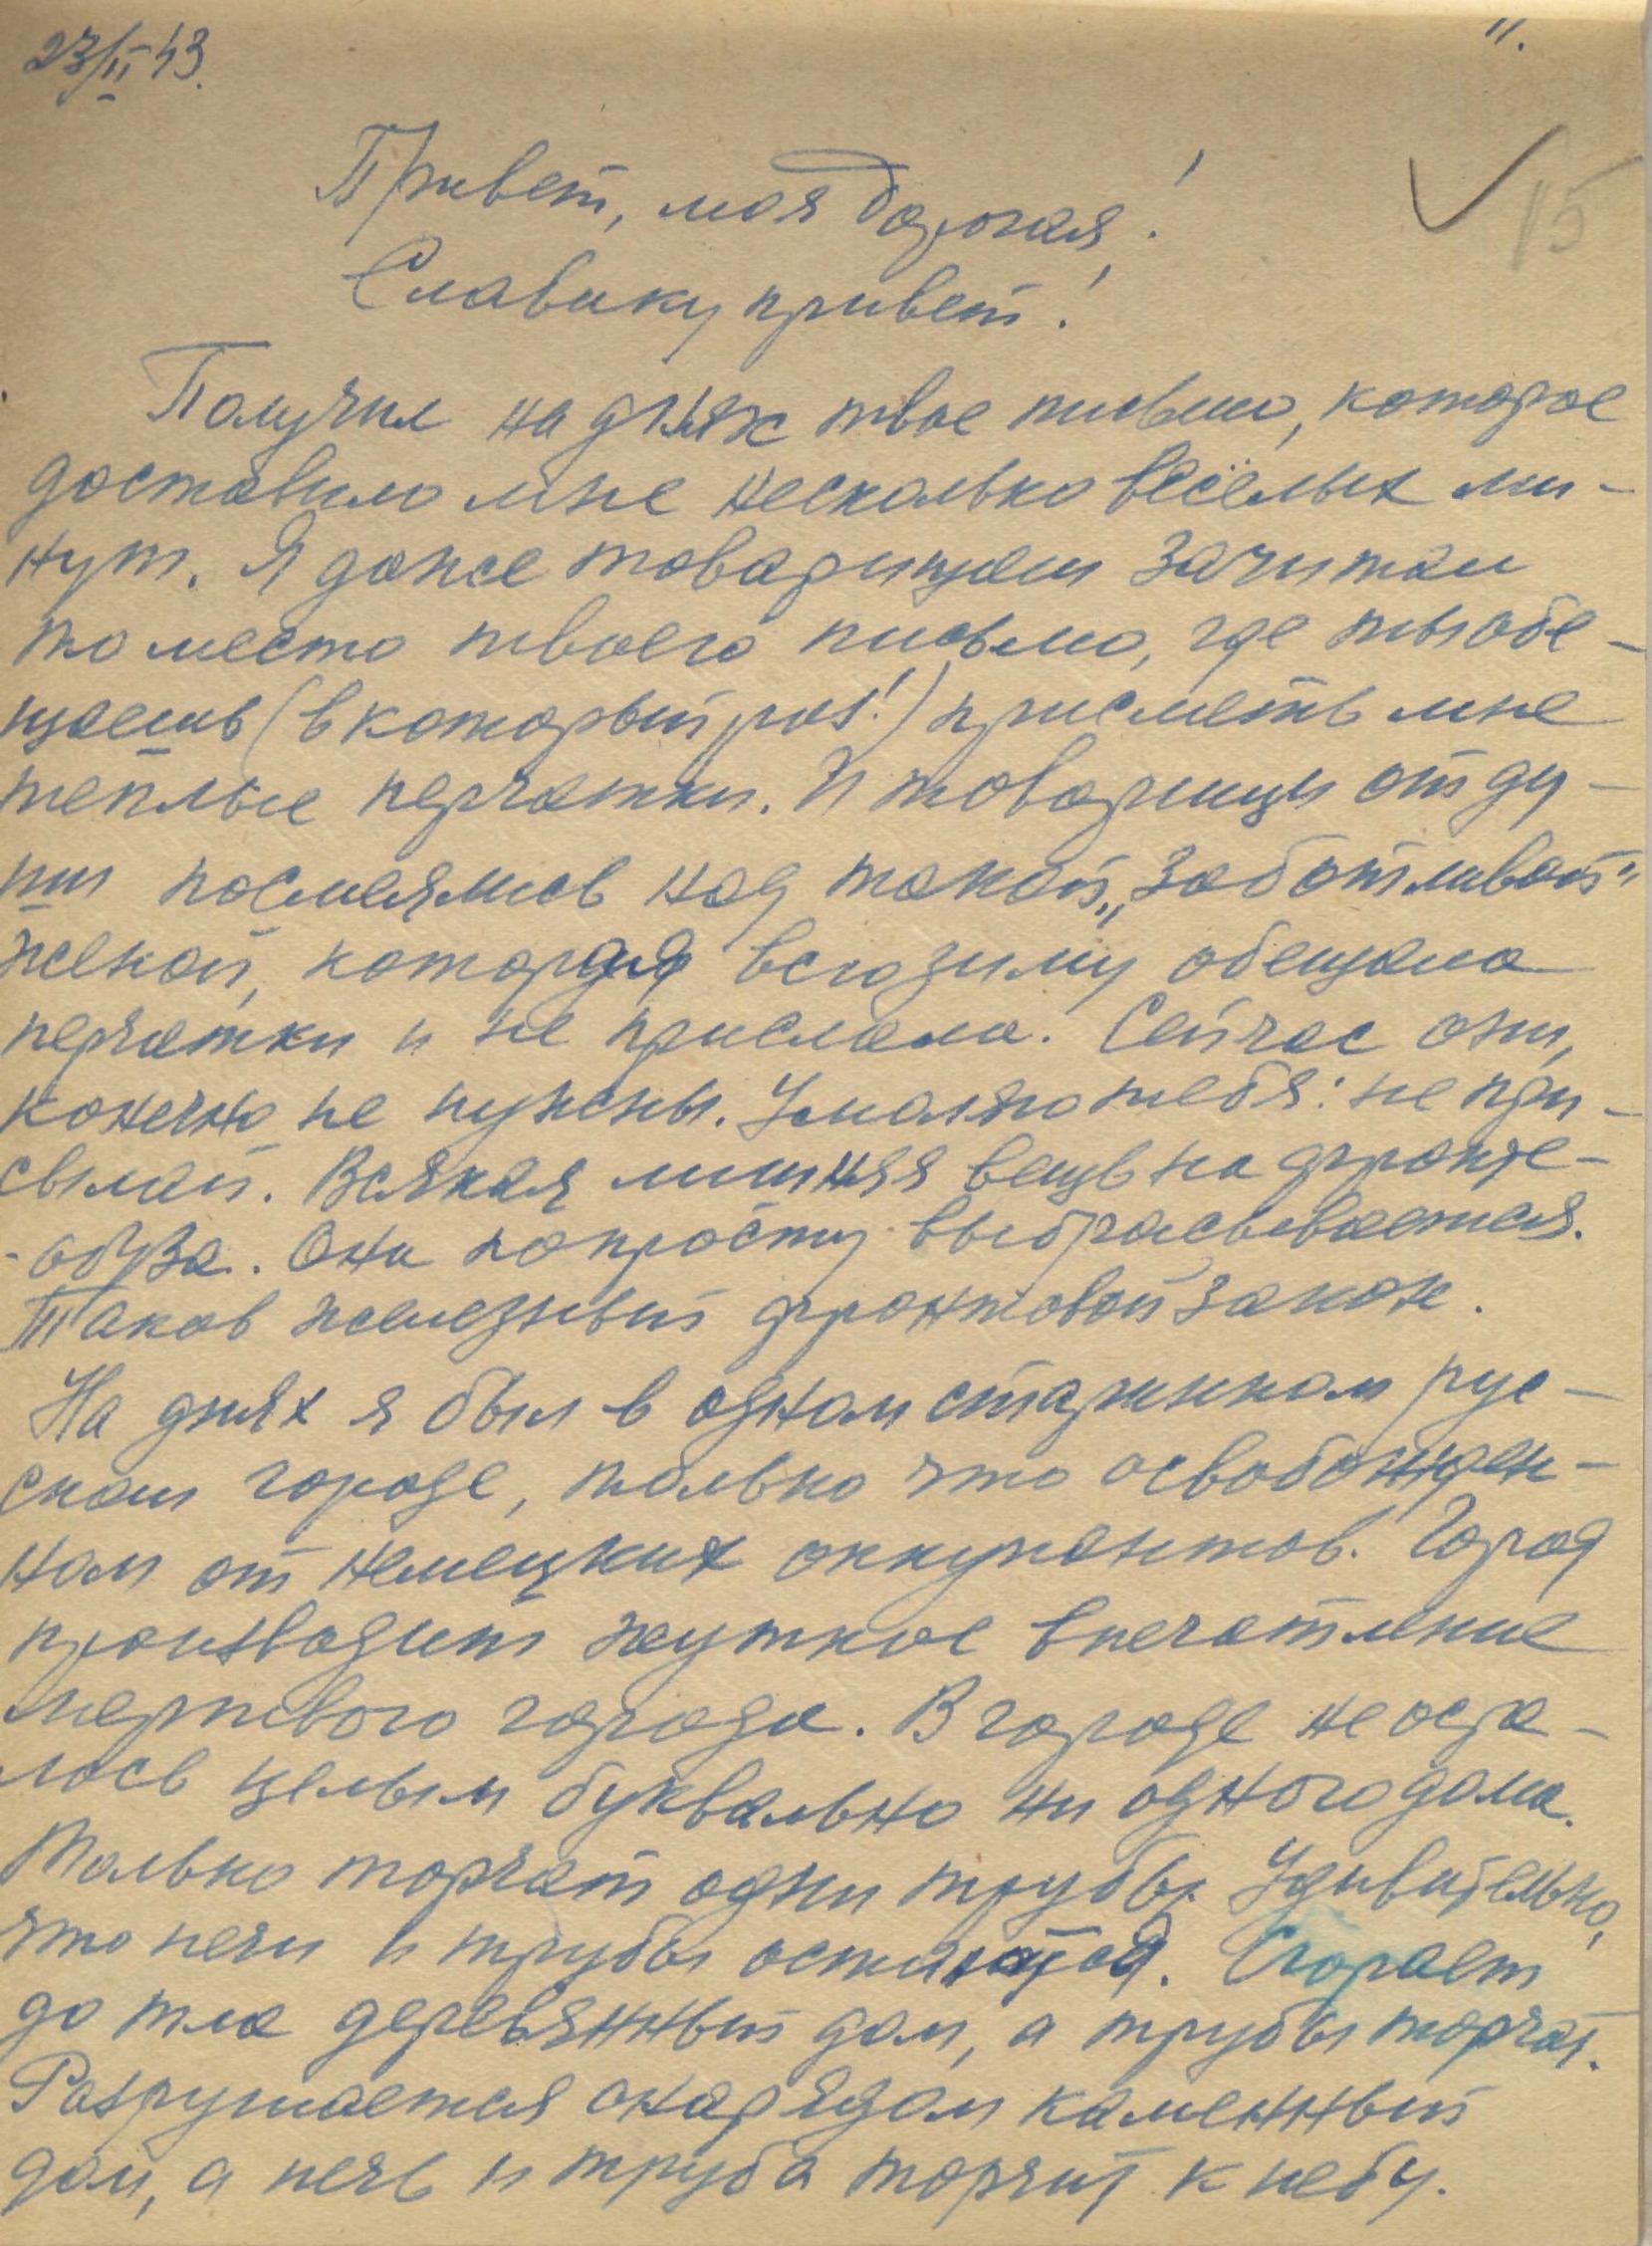 23/II 43.
11.
15
Привет, моя дорогая!
Славику привет!
Получил на днях твое письмо, которое
доставило мне несколько весёлых ми-
нут. Я даже товарищам зачитал
то место твоего письма, где ты обе-
щаешь (в который раз!) прислать мне
теплые перчатки. И товарищи от ду-
ши посмеялись над такой „заботливой"
женой, которая всю зиму обещала
перчатки и не прислала. Сейчас они,
конечно не нужны. Умоляю тебя: не при-
сылай. Всякая лишняя вещь на фронте-
- обуза. Она попросту выбрасывается.
Таков железный фронтовой закон.
На днях я был в одном старинном рус-
ском городе, только что освобожден-
ном от немецких оккупантов. Город
производит жуткое впечатление
мертвого города. В городе не оста-
лось целым буквально ни одного дома.
Только торчат одни трубы. Удивительно,
что печи и трубы остаются. Сгорает
до тла деревянный дом, а трубы торчат.
Разрушается снарядом каменный
дом, а печь и труба торчит к небу.